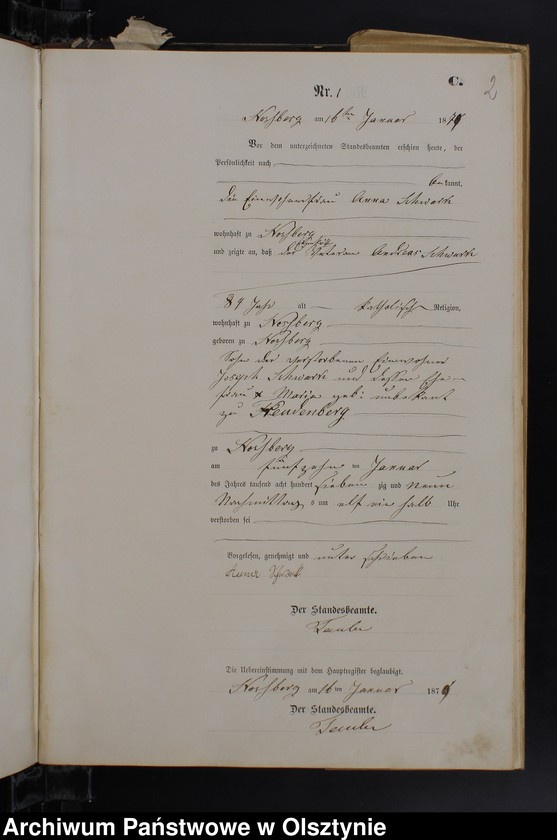 C.
2
Nr. 1
am 16ten Januar 1879
Vor dem unterzeichneten Standesbeamten erschien heute, der
Persönlichkeit nach
bekannt,
die Einwohnerfrau Anna Schwark
wohnhaft zu
und zeigte an, daß der Veteran Andreas Schwark
89 Jahr alt katholisch Religion,
wohnhaft zu
geboren zu
Sohn der verstorbenen Einwohner
Joseph Schwark und dessen Ehe-
frau Maria geb: unbekant
zu
zu
am fünfzehn ten Januar
des Jahres tausend acht hundert sieben zig und neun
Nachmittags um elf ein halb Uhr
verstorben sei
Vorgelesen, genehmigt und unterschrieben
Der Standesbeamte.
Die Uebereinstimmung mit dem Hauptregister beglaubigt.
am 16ten Januar 1879
Der Standesbeamte.
Archiwum Państwowe w Olsztynie